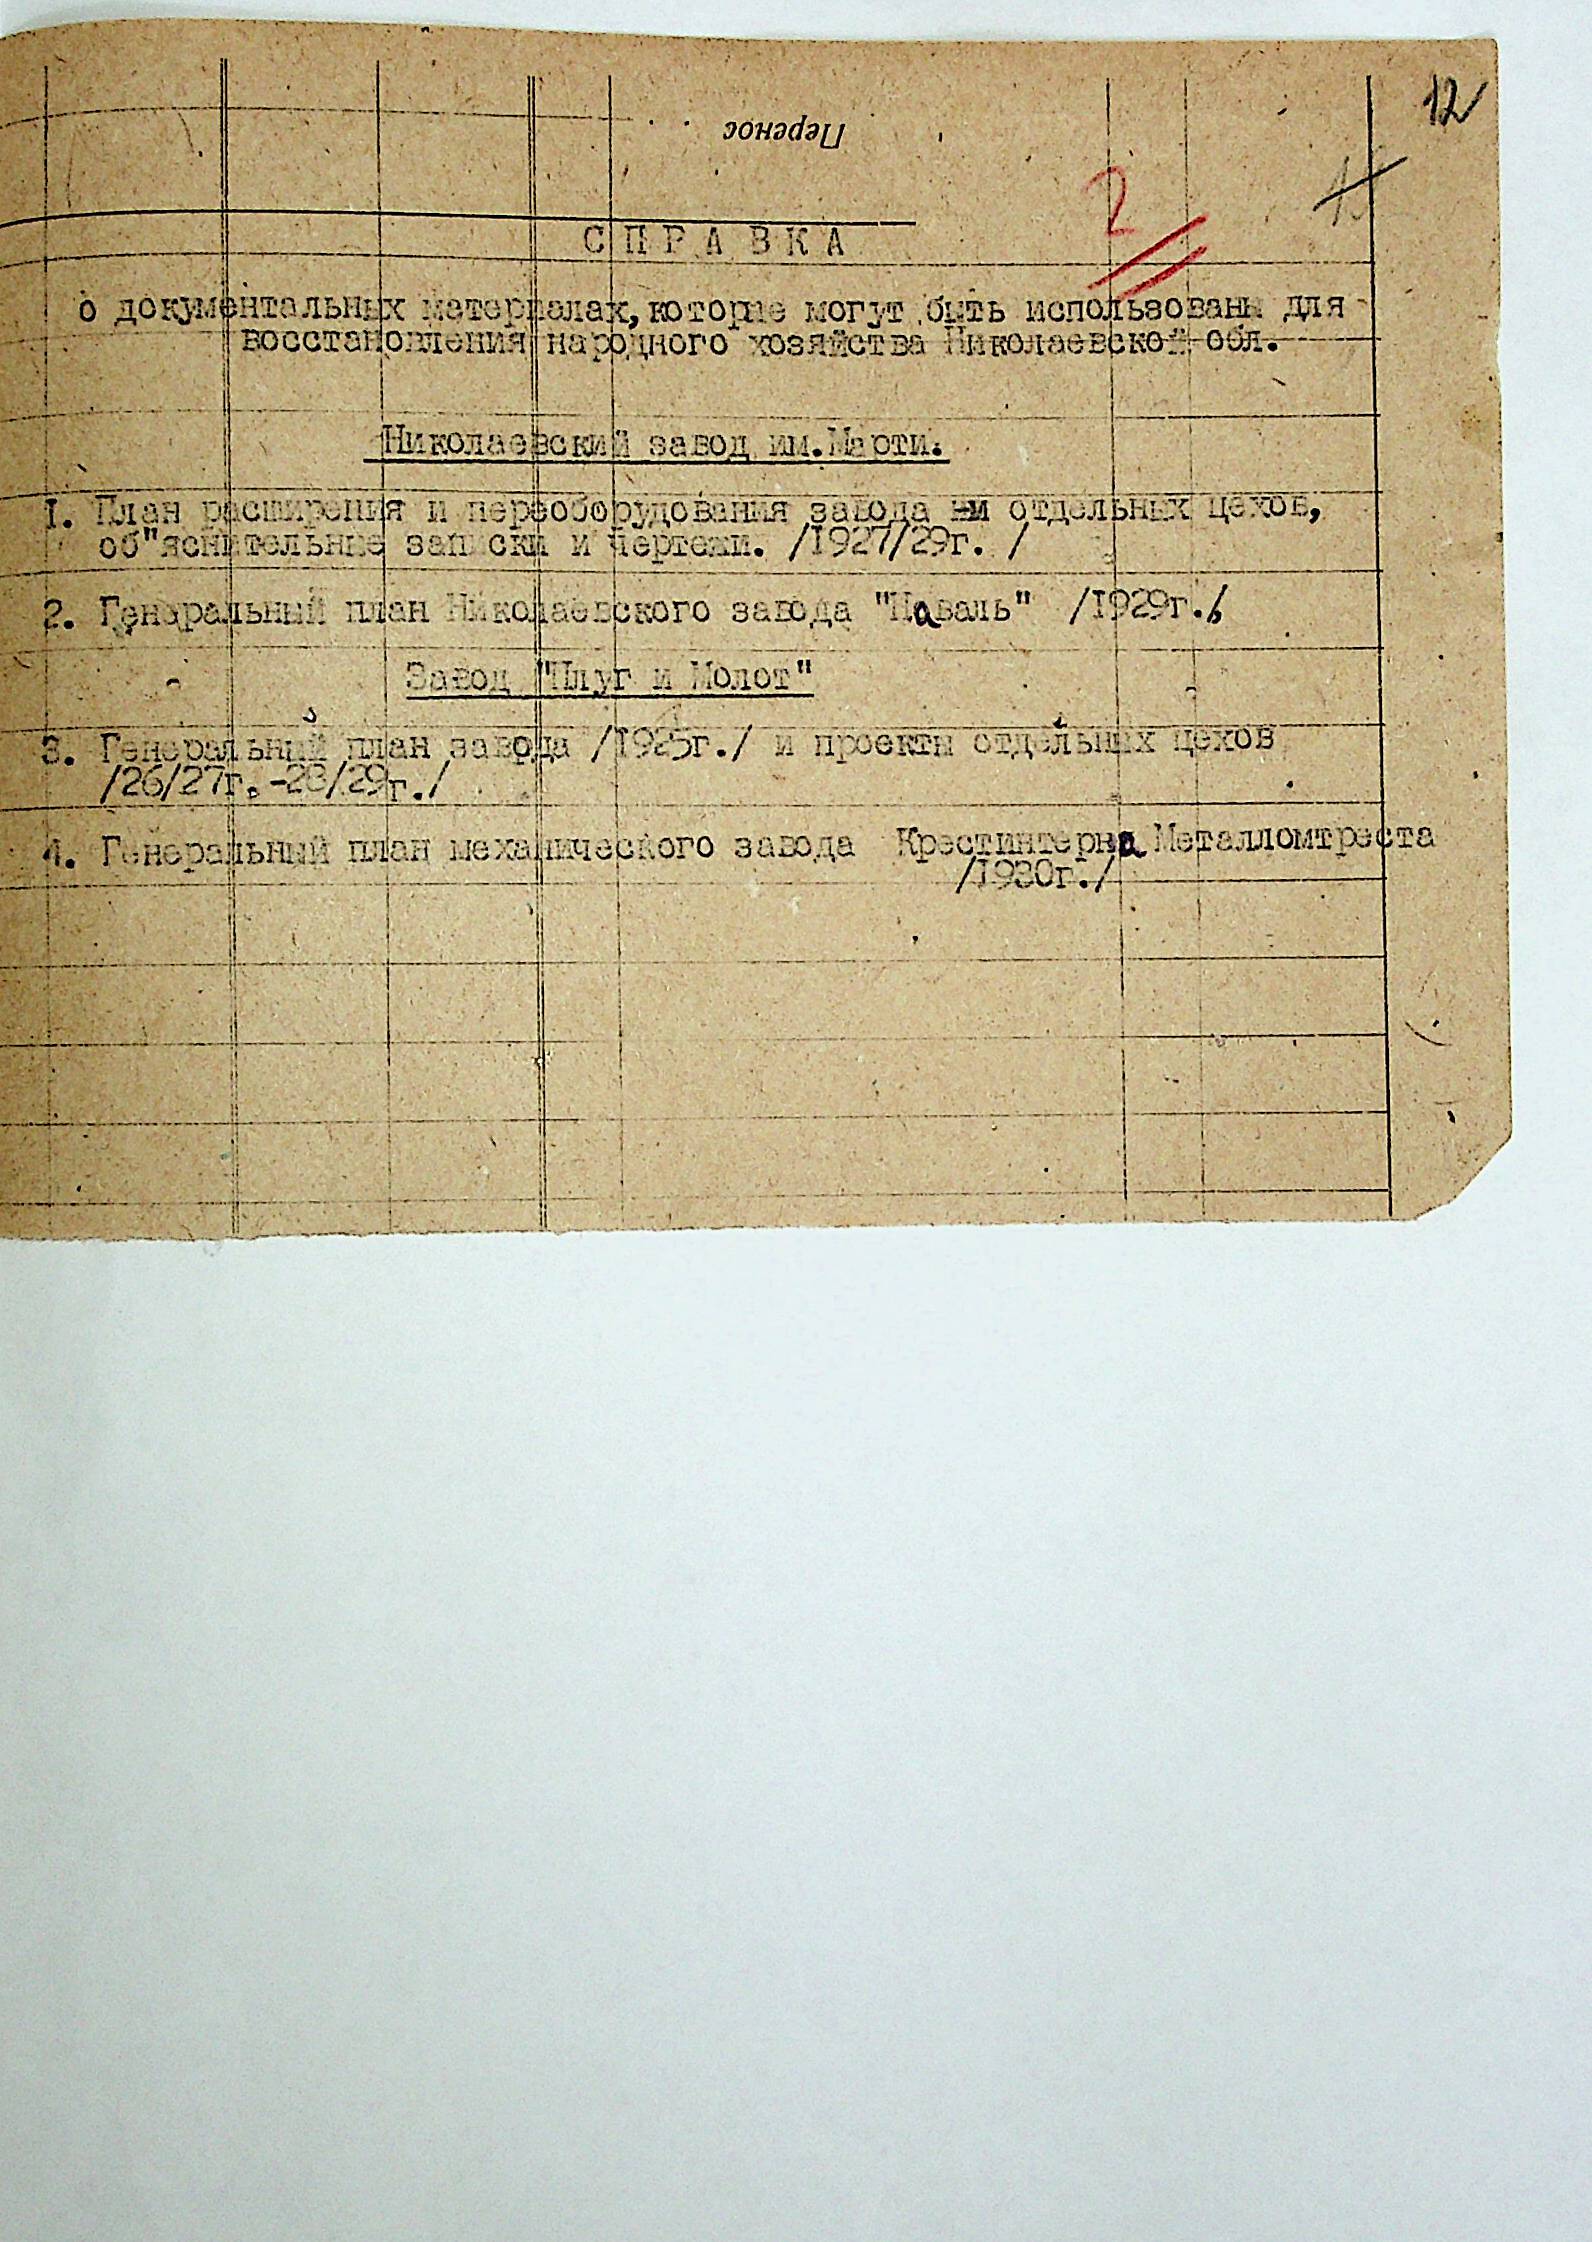 12
Перенос
2
С П Р А В К А
о документальных материалах, которые могут быть использованы для
восстановления народного хозяйства Николаевской обл.
Николаевский завод им.Марти.
1. План расширения и переоборудования завода и отдельных цехов,
об"яснительные записки и чертежи. /1927/29г. /
2. Генеральный план Николаевского завода "Наваль" /1929г./
Завод "Плуг и Молот"
3. Генеральный план завода /1925г./ и проекты отдельных цехов
/26/27г.-28/29г./
4. Генеральный план механического завода Крестинтерна Металломтреста
/1930г./